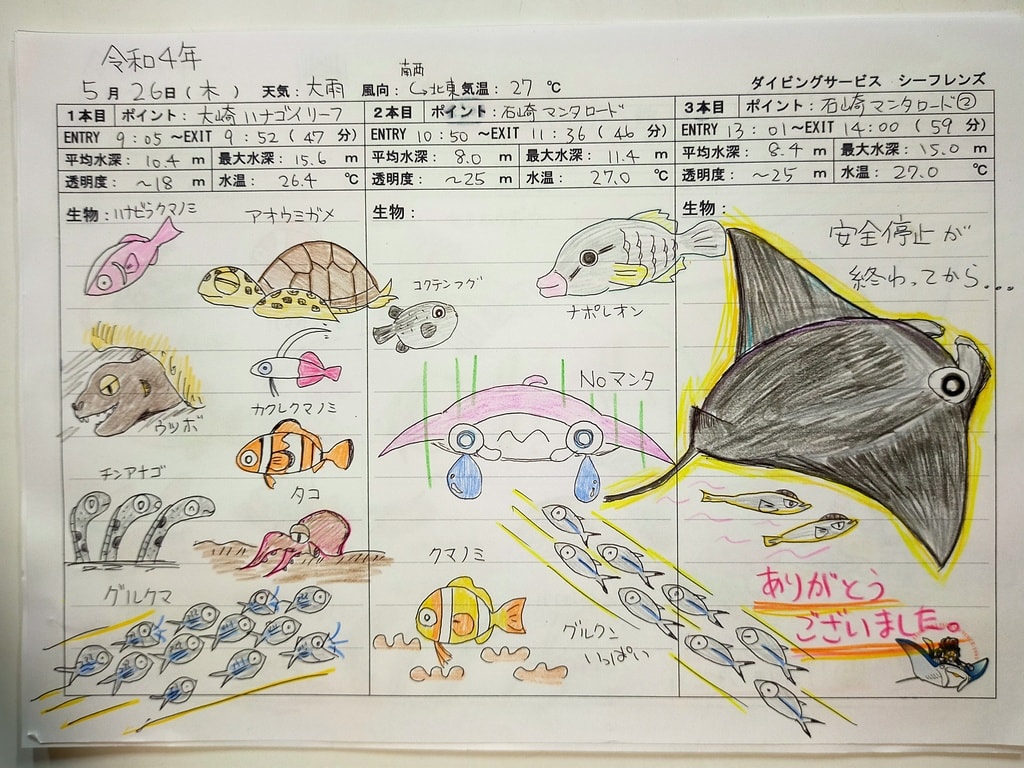 令和4年
5月26日(木) 天気:大雨 風向:南西↪北東 気温:27℃ ダイビングサービス シーフレンズ
1本目 ポイント:大崎ハナゴイリーフ
ENTRY 9:05〜EXIT 9:52(47分)
平均水深:10.4m 最大水深:15.6m
透明度:〜18m 水温:26.4℃
生物:ハナビラクマノミ
アオウミガメ
ウツボ
カクレクマノミ
チンアナゴ
タコ
グルクマ
2本目 ポイント:石崎マンタロード
ENTRY 10:50〜EXIT 11:36(46分)
平均水深:8.0m 最大水深:11.4m
透明度:〜25m 水温:27.0℃
生物:
コクテンフグ
ナポレオン
Noマンタ
クマノミ
グルクン
いっぱい
3本目 ポイント:石崎マンタロード②
ENTRY 13:01〜EXIT 14:00(59分)
平均水深:8.4m 最大水深:15.0m
透明度:〜25m 水温:27.0℃
生物:
安全停止が
終わってから...
ありがとう
ございました。